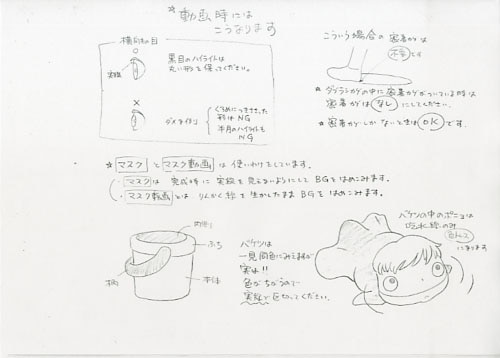 *動画時には
こうなります
横向きの目
○
実線
黒目のハイライトは
丸い形を保ってください。
×
ダメな行う
くろめにつきささった
形はNG
半月のハイライトも
NG
こういう場合の密着カゲは
不要です
*ダブラシカゲの中に密着カゲがついている時は
密着カゲはなしにしてください。
*密着カゲしかないときはOKです。
*マスクとマスク動画は使いわけをしています。
・マスクは完成時に実線を見えないようにしてBGをはめこみます。
・マスク動画とはりんかく線を生かしたままBGをはめこみます。
内側
ふち
本体
柄
バケツは
一見同色にみえますが
実は!!
色がちがうので
実線で区切ってください。
バケツの中のポニョは
になります